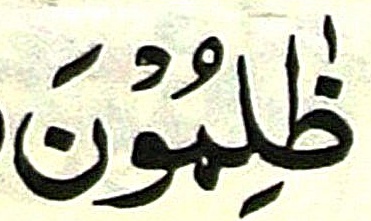 ظٰلِمُوْنَ